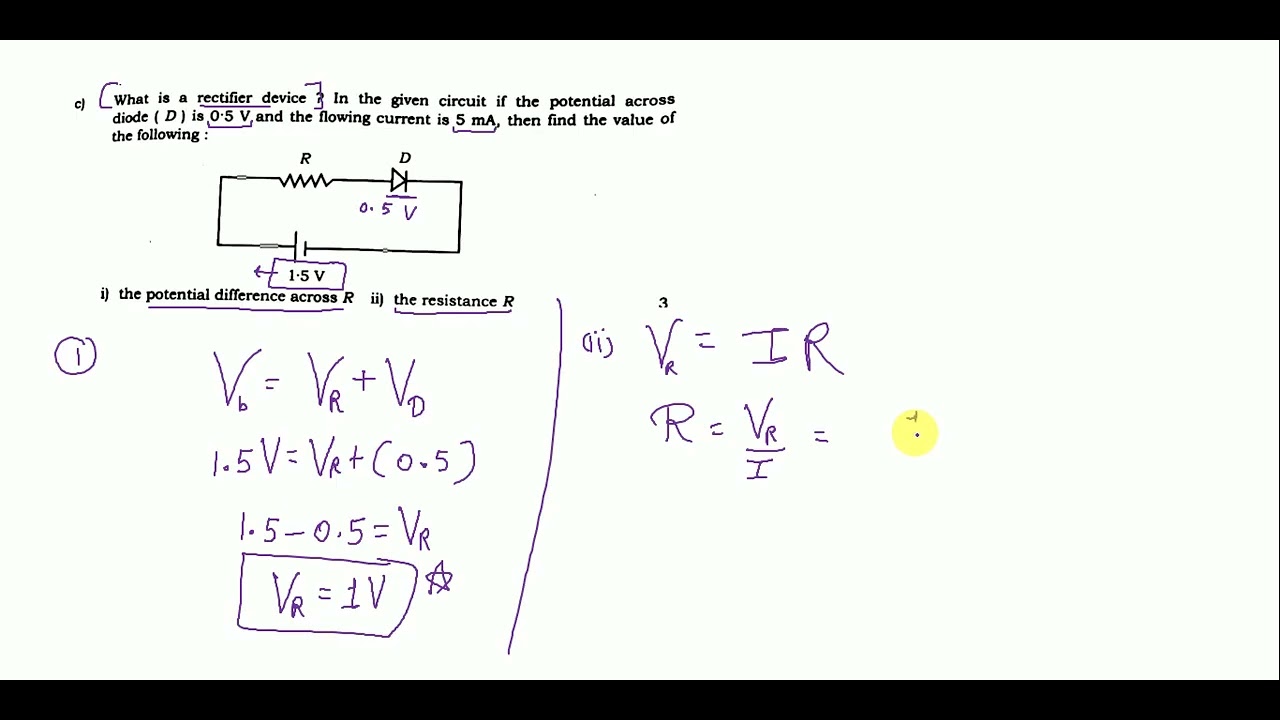 c) What is a rectifier device ? In the given circuit if the potential across
diode ( D ) is 0·5 V and the flowing current is 5 mA, then find the value of
the following :
R D
0.5 V
1·5 V
i) the potential difference across R ii) the resistance R
3
1
V_b = V_R + V_D
1.5V = V_R + (0.5)
1.5 - 0.5 = V_R
V_R = 1V
(ii) V_R = I R
R = V_R / I =